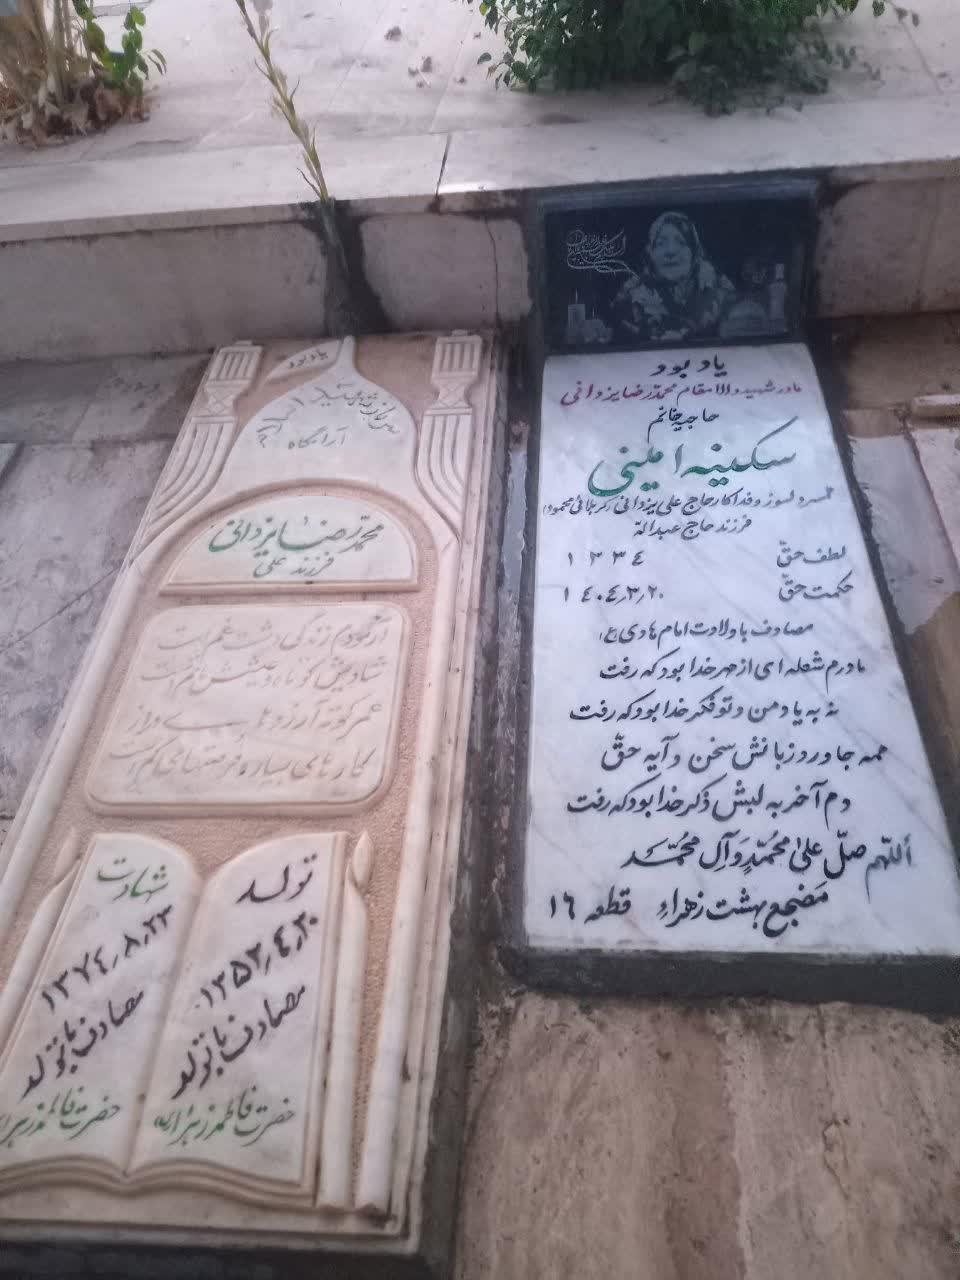 یاد بود
مادر شهید والامقام محمدرضا یزدانی
حاجیه خانم
سکینه امینی
همسر دلسوز و فداکار حاج علی یزدانی (کربلائی محمود)
فرزند حاج عبداله
لطف حقّ ١٣٣٤
حکمت حقّ ١٤٠٤٫٣٫٢٠
مصادف با ولادت امام هادی (ع)
مادرم شعله ای از مهر خدا بود که رفت
نه به یاد من و تو فکر خدا بود که رفت
همه جا ورد زبانش سخن و آیه حقّ
دم آخر به لبش ذکر خدا بود که رفت
أللّهم صلّ علیٰ محُمّدٍ وَآلِ محُمّد
مَضجع بهشت زهراء قطعه ١٦
یاد بود
آرامگاه
محمّد رضا یزدانی
فرزند علی
آزمودم زندگی دشت غم است
شادیش کوتاه و عیشش ماتم است
عمر کوته آرزوها بس دراز
کارهای بسیار و فرصتهای کم است
تولد
١٣٥٢٫٤٫٢٠
مصادف با تولد
حضرت فاطمه زهرا (س)
شهادت
١٣٧٤٫٨٫٢٣
مصادف با تولد
حضرت فاطمه زهرا